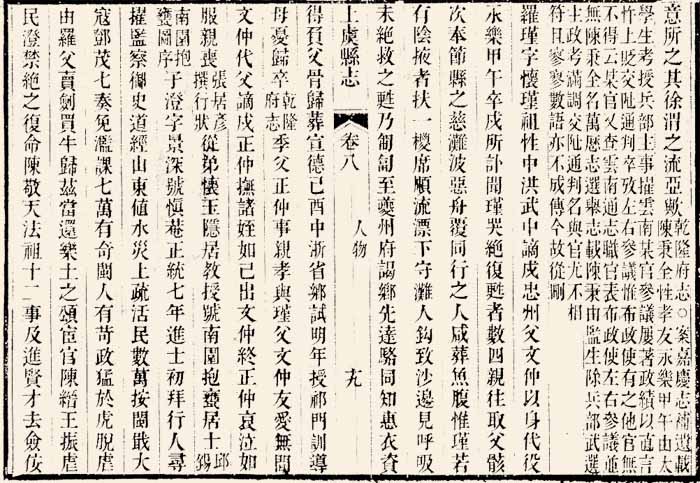 意所之其徐渭之流亞歟乾隆府志○案嘉慶志補遺載陳秉全性孝友永樂甲午由太
學生考授兵部主事擢雲南某官參議屢著政績以直言
忤上貶交阯通判卒攷左右參議惟布政使有之他官無
不得云某官又查雲南通志職官表布政使左右參議並
無陳秉全名萬歷志選舉志載陳秉由監生除兵部武選
主政考滿調交阯通判名與官尤不相
符且寥寥數語亦不成傳今故從刪
羅瑾字懷瑾祖性中洪武中謫戍忠州父文仲以身代役
永樂甲午卒戍所訃聞瑾哭絕復甦者數四親往取父骸
次奉節縣之慈灘波惡舟覆同行之人咸葬魚腹惟瑾若
有陰掖者扶一樓席順流漂下守灘人鈎致沙邊見呼吸
未絕救之甦乃匍匐至夔州府謁鄉先達駱同知惠衣資
上虞縣志 卷八 人物 六
得負父骨歸葬宣德己酉中浙省鄉試明年授祁門訓導
母憂歸卒乾隆府志季父正仲事親孝與瑾父文仲友愛無間
文仲代父謫戍正仲撫諸姪如己出文仲終正仲哀泣如
服親喪張居彥撰行狀從弟懷玉隱居教授號南園抱甕居士邱錫
南園抱甕圖序子澄字景深號愼菴正統七年進士初拜行人尋
擢監察御史道經山東値水災上疏活民數萬按閩戢大
寇鄧茂七奏免濫課七萬有奇閩人有苛政猛於虎脫虐
由羅父賣劍買牛歸茲當還樂土之頌宦官陳縉王振虐
民澄禁絕之復命陳敬天法祖十二事及進賢才去僉佞